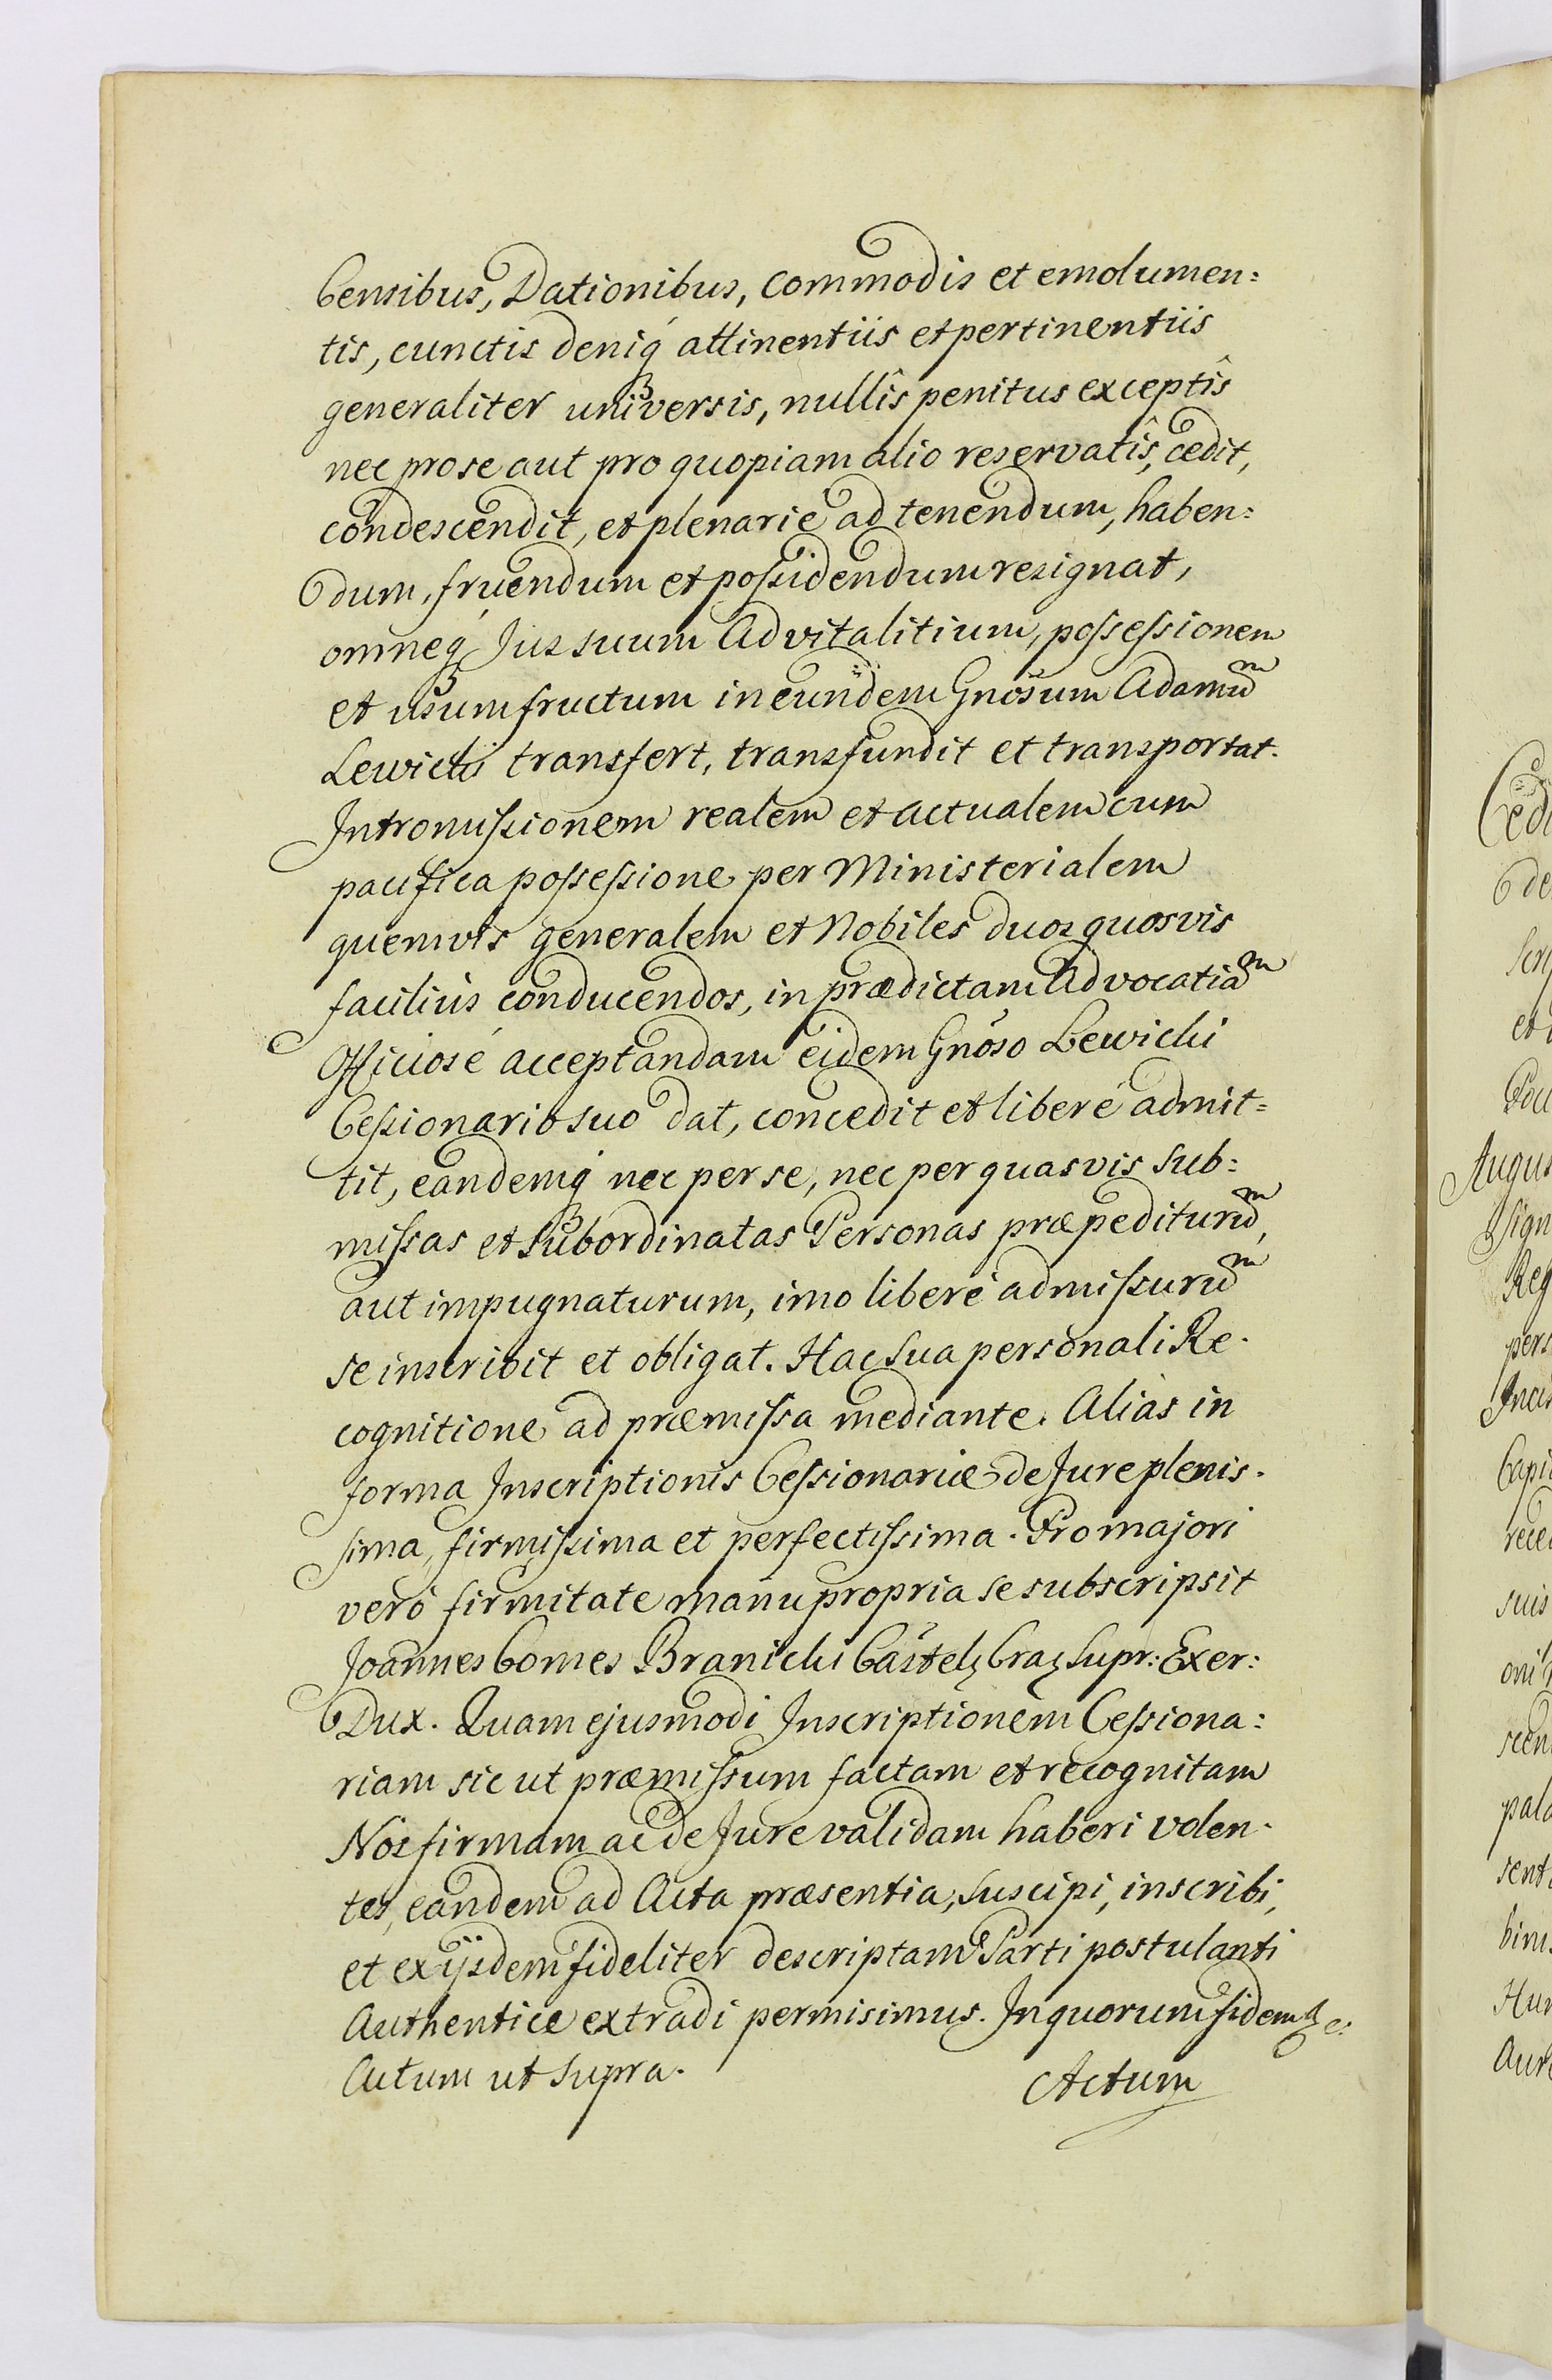 Censibus, Dationibus, commodis et emolumen:
tis, cunctis deniq́ attinentiis et pertinentiis
generaliter universis, nullîs penitus exceptîs
nec pro se aut pro quopiam alio reservatîs, cedit,
condescendit, et plenarié ad tenendum, haben:
dum, fruendum et possidendum resignat,
omneq́ Jus suum Advitalitium, possessionem
et usumfructum in eundem Gnosum Adamum
Lewicki transfert, transfundit et transportat.
Intromissionem realem et actualem cum
pacifica possessione per Ministerialem
quemvis generalem et Nobiles duos quosvis
facilius conducendos, in prædictam Advocatiam
Officiosé acceptandam eidem Gnoso Lewicki
Cessionario suo dat, concedit et liberé admit=
tit, eandemq́ nec per se, nec per quasvis sub:
missas et Subordinatas Personas præpediturum,
aut impugnaturum, imo liberé admissurum
se inscribit et obligat. Hac Sua personali Re.
cognitione ad præmissa mediante. Alias in
forma Inscriptionis Cessionariæ de Jure plenis.
sima, firmissima et perfectissima. Pro majori
veró firmitate manu propria se subscripsit
Joannes Comes Branicki Castel: Crac: Supr: Exer:
Dux. Quam ejusmodi Inscriptionem Cessiona:
riam sic ut præmissum factam et recognitam
Nos firmam ac de Jure validam haberi volen.
tes, eandem ad Acta præsentia, suscipi, inscribi,
et ex ijsdem fideliter descriptam Parti postulanti
Authenticé extradi permisimus. In quorum fidem &c:
Actum ut Supra.
Actum